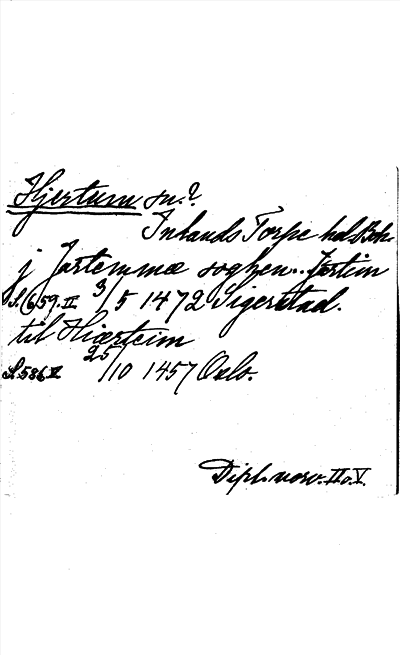 Hjertum sn.?
Inlands Torpe hd Boh.
j Jartemmæ soghen.. Jortim
S. 659. II 3/5 1472 Sigerstad.
til Hiærteim
S 586 V 25/10 1457 Oslo.
Dipl. norv. II o. V.